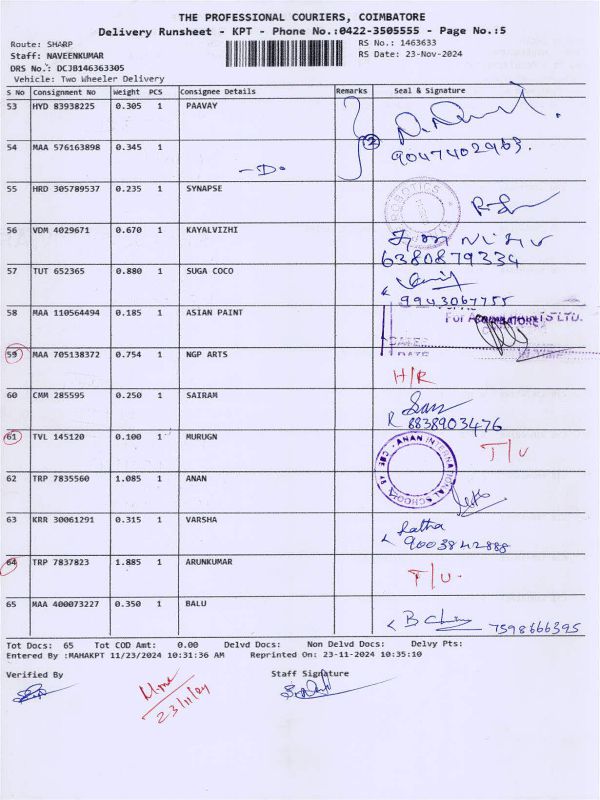 THE PROFESSIONAL COURIERS, COIMBATORE
Delivery Runsheet - KPT - Phone No.:0422-3505555 - Page No.:5
Route: SHARP RS No.: 1463633
Staff: NAVEENKUMAR RS Date: 23-Nov-2024
DRS No.: DCJB146363305
Vehicle: Two Wheeler Delivery
S No Consignment No Weight PCS Consignee Details Remarks Seal & Signature
53 HYD 83938225 0.305 1 PAAVAY
54 MAA 576163898 0.345 1 2
9047402963.
-D-
55 HRD 305789537 0.235 1 SYNAPSE
ROBOTICS
56 VDM 4029671 0.670 1 KAYALVIZHI
6380879334
57 TUT 652365 0.880 1 SUGA COCO
9943067755
58 MAA 110564494 0.185 1 ASIAN PAINT
COIMBATORE
DATE
59 MAA 705138372 0.754 1 NGP ARTS
H/R
60 CMM 285595 0.250 1 SAIRAM
R 8838903476
61 TVL 145120 0.100 1 MURUGN
T/U
ANAN INTERNATIONAL SCHOOL CBE
62 TRP 7835560 1.085 1 ANAN
63 KRR 30061291 0.315 1 VARSHA
Latha
9003842888
64 TRP 7837823 1.885 1 ARUNKUMAR
T/U.
65 MAA 400073227 0.350 1 BALU
7598666395
Tot Docs: 65 Tot COD Amt: 0.00 Delvd Docs: Non Delvd Docs: Delvy Pts:
Entered By :MAHAKPT 11/23/2024 10:31:36 AM Reprinted On: 23-11-2024 10:35:10
Verified By Staff Signature
23/11/24